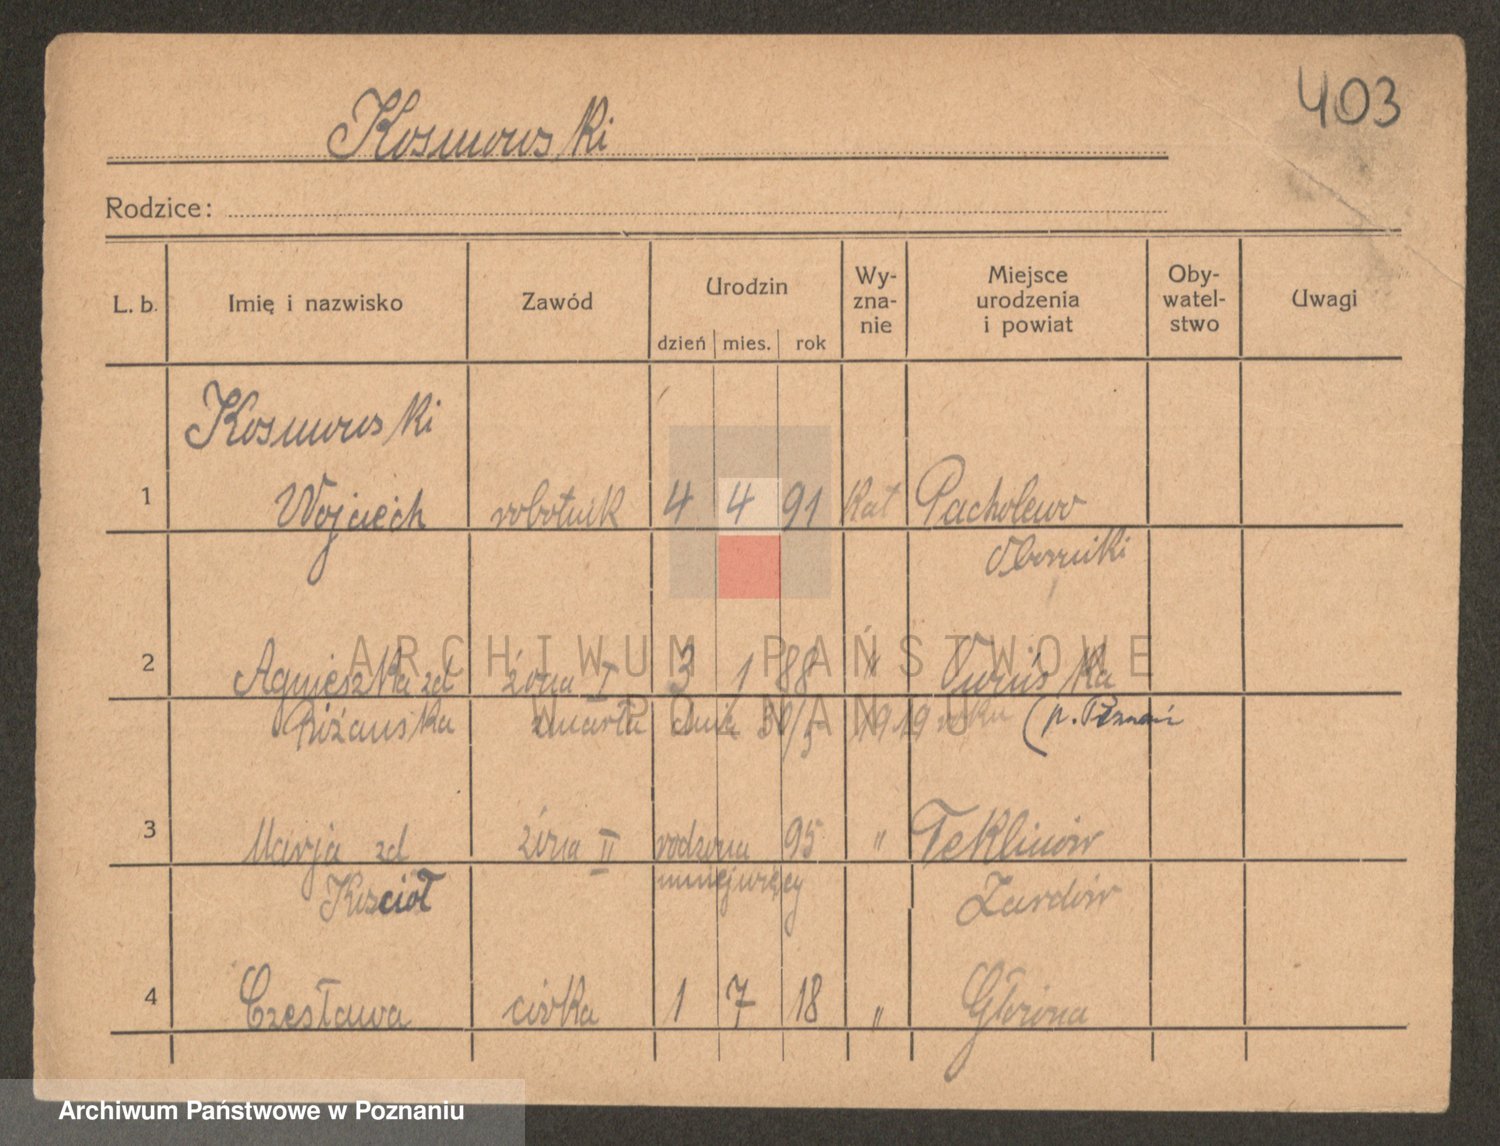 403
Kosmowski
Rodzice:
L. b. Imię i nazwisko Zawód Urodzin dzień mies. rok Wy-zna-nie Miejsce urodzenia i powiat Oby-watel-stwo Uwagi
Kosmowski
1 Wojciech robotnik 4 4 91 kat Pacholewo
Oborniki
2 Agnieszka zd żona I 3 1 88 "
zmarła dnia 30/5 1919 roku (p. Poznań
3 Marja zd żona II rodzona 95 " Teklinów
Kościół mniejwięcej
4 Czesława córka 1 7 18 "
ARCHIWUM PAŃSTWOWE
W POZNANIU
Archiwum Państwowe w Poznaniu